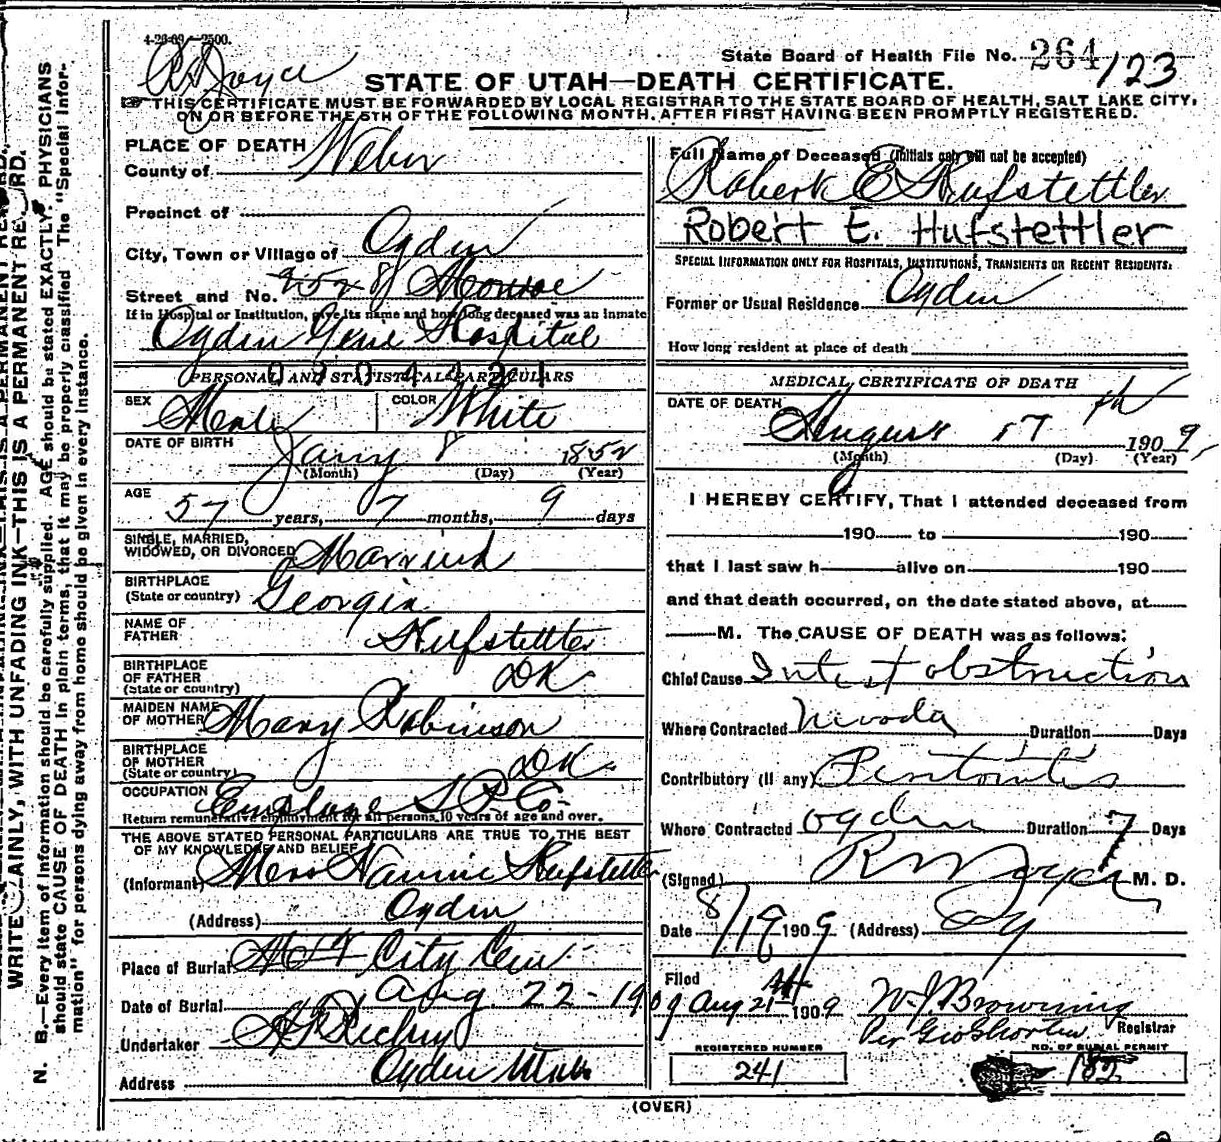 4-26-09 - 2500.
R Joyce
State Board of Health File No. 264 /123
STATE OF UTAH—DEATH CERTIFICATE.
THIS CERTIFICATE MUST BE FORWARDED BY LOCAL REGISTRAR TO THE STATE BOARD OF HEALTH, SALT LAKE CITY,
ON OR BEFORE THE 5TH OF THE FOLLOWING MONTH, AFTER FIRST HAVING BEEN PROMPTLY REGISTERED.
PLACE OF DEATH
County of Weber
Precinct of
City, Town or Village of Ogden
Street and No. 2528 Monroe
If in Hospital or Institution, give its name and how long deceased was an inmate
Ogden Gene Hospital
PERSONAL AND STATISTICAL PARTICULARS
SEX Male COLOR White
DATE OF BIRTH
Jany 8 1852
(Month) (Day) (Year)
AGE
57 years, 7 months, 9 days
SINGLE, MARRIED,
WIDOWED, OR DIVORCED Married
BIRTHPLACE
(State or country) Georgia
NAME OF
FATHER Hufstettler
BIRTHPLACE
OF FATHER
(State or country) DK
MAIDEN NAME
OF MOTHER Mary Robinson
BIRTHPLACE
OF MOTHER
(State or country) DK
OCCUPATION Employe S P Co-
Return remunerative employment for all persons 10 years of age and over.
THE ABOVE STATED PERSONAL PARTICULARS ARE TRUE TO THE BEST
OF MY KNOWLEDGE AND BELIEF
(Informant) Mrs Nannie Hufstettler
(Address) " Ogden
Place of Burial City Cem
Date of Burial Aug. 22-1909
Undertaker
Address Ogden Utah
Full Name of Deceased (Initials only will not be accepted)
Robert E Hufstettler
Robert E. Hufstettler
SPECIAL INFORMATION ONLY FOR HOSPITALS, INSTITUTIONS, TRANSIENTS OR RECENT RESIDENTS:
Former or Usual Residence Ogden
How long resident at place of death
MEDICAL CERTIFICATE OF DEATH
DATE OF DEATH
August 17th 1909,
(Month) (Day) (Year)
I HEREBY CERTIFY, That I attended deceased from
190 to 190
that I last saw h alive on 190
and that death occurred, on the date stated above, at
M. The CAUSE OF DEATH was as follows:
Chief Cause Intest obstruction
Where Contracted Nevada Duration Days
Contributory (if any) Peritonitis
Where Contracted Ogden Duration 7 Days
(Signed) R M Joyce M. D.
Date 8/19 1909 (Address)
Filed
Aug 21st 1909 W J Browning
Per Registrar
REGISTERED NUMBER
241
NO. OF BURIAL PERMIT
182
(OVER)
WRITE PLAINLY, WITH UNFADING INK—THIS IS A PERMANENT RECORD.
N. B.—Every item of information should be carefully supplied. AGE should be stated EXACTLY. PHYSICIANS
should state CAUSE OF DEATH in plain terms, that it may be properly classified. The "Special Infor-
mation" for persons dying away from home should be given in every instance.